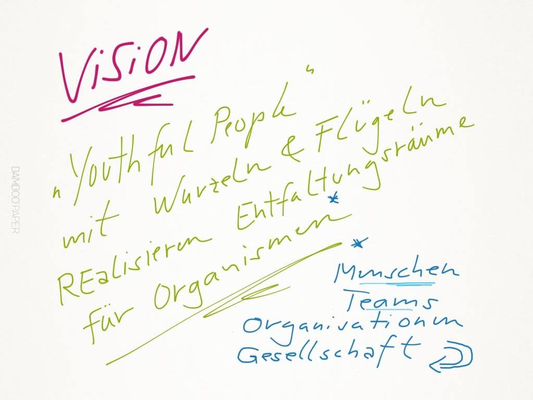 ViSiON
„Youthful People"
mit Wurzeln & Flügeln
REalisieren Entfaltungsräume
für Organismen*
* Menschen
Teams
Organisationen
Gesellschaft
BAMBOO PAPER